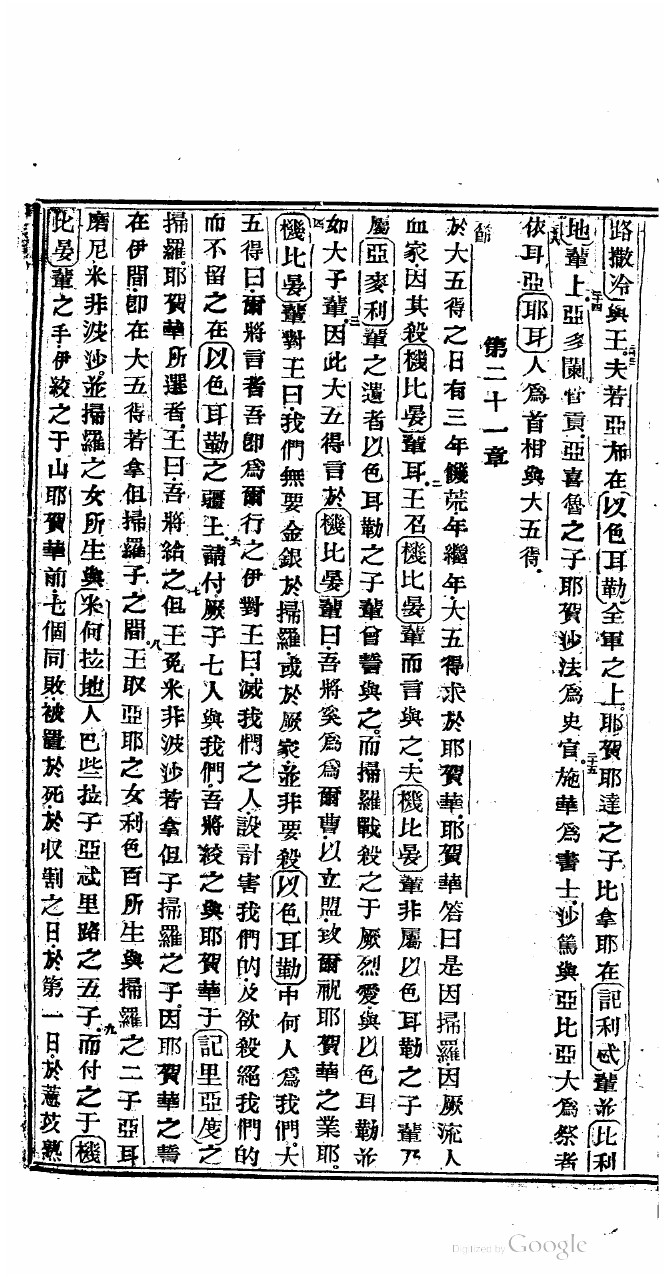 路撒冷與王。夫若亞施在以色耳勒全軍之上。耶賀耶達之子比拿耶在記利忒輩並比利
地輩上。亞多闌官貢。亞喜魯之子耶賀沙法為史官。施華為書士。沙篤與亞比亞大為祭者
依耳亞耶耳人為首相與大五得。
第二十一章
節 於大五得之日有三年饑荒年繼年。大五得求於耶賀華。耶賀華答曰是因掃羅因厥流人
血家因其殺機比晏輩耳。王召機比晏輩而言與之。夫機比晏輩非屬以色耳勒之子輩乃
屬亞麥利輩之遺者以色耳勒之子輩曾誓與之。而掃羅戰殺之于厥烈愛。與以色耳勒並
如大子輩。因此大五得言於機比晏輩曰。吾將奚為為爾曹。以立盟。致爾祝耶賀華之業耶。
機比晏輩對王曰。我們無要金銀於掃羅。或於厥家。並非要殺以色耳勒中何人為我們。大
五得曰。爾將言者吾即為爾行之伊對王曰滅我們之人。設計害我們的。及欲殺絕我們的
而不留之在以色耳勒之疆土。請付厥子七人與我們。吾將絞之與耶賀華于記里亞度之
掃羅。耶賀華所選者。王曰。吾將給之但王免米非波沙若拿但子掃羅之子。因耶賀華之誓
在伊間。即在大五得若拿但掃羅子之間王取亞耶之女利色百所生與掃羅之二子亞耳
磨尼米非波沙。並掃羅之女所生與米何拉地人巴些拉子亞忒里路之五子。而付之于機
比晏輩之手伊絞之于山耶賀華前。七個同敗。被置於死。於收割之日。於第一日。於薏苡熟
二十三
二十四
二十五
二十六
二
三
四
六
七
八
九
Digitized by Google